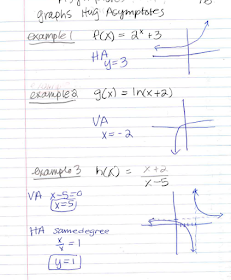 graphs Hug Asymptotes
example 1 f(x) = 2ˣ + 3
HA
y=3
example 2 g(x) = ln(x+2)
VA
x = -2
example 3 h(x) = x+2
x-5
VA x-5=0
x=5
HA same degree
x/x = 1
y=1